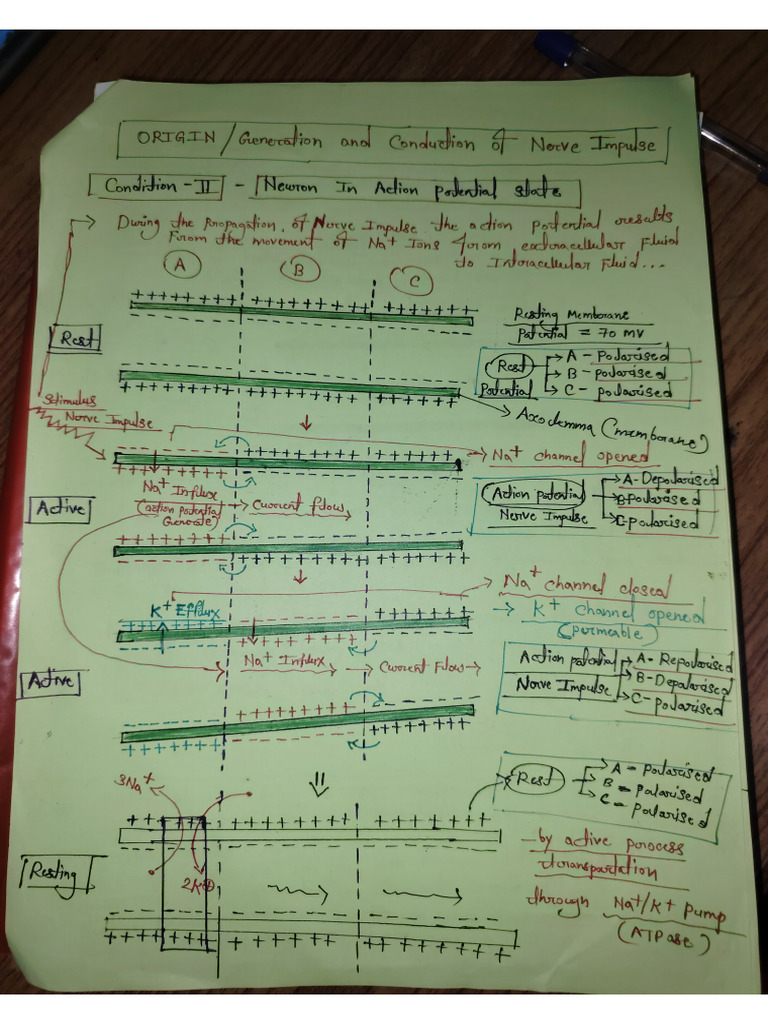 ORIGIN / Generation and Conduction of Nerve Impulse
Condition - II - Neuron In Action potential state
During the Propagation, of Nerve Impulse the action potential results
From the movement of Na+ Ions from extracellular Fluid
to Intracellular Fluid...
A B C
+ + + + + + + + + + + + + + + + + + + + + + + + + +
Resting Membrane
Potential = 70 mV
Rest
Rest Potential
A - Polarised
B - polarised
C - polarised
+ + + + + + + + + + + + + + + + + + + + + + + + + +
Axolemma (membrane)
Stimulus
Nerve Impulse
Na+ channel opened
+ + + + + + + + + + + + + + + + + + + + + + + + + +
Na+ Influx
(action potential Generate)
Current flow
Active
Action potential
Nerve Impulse
A - Depolarised
B - Polarised
C - polarised
+ + + + + + + + + + + + + + + + + + + + + + + + + +
Na+ channel closed
K+ channel opened
(permeable)
K+ Efflux
+ + + + + + + + + + + + + + + + + + + + + + + + + +
Na+ Influx
Current Flow
Active
Action potential
Nerve Impulse
A - Repolarised
B - Depolarised
C - polarised
+ + + + + + + + + + + + + + + + + + + + + + + + + +
3Na+
Rest
A = Polarised
B = Polarised
C = Polarised
+ + + + + + + + + + + + + + + + + + + + + + + + + +
2K+
Resting
by active process
transportation
through Na+/K+ Pump
(ATPase)
+ + + + + + + + + + + + + + + + + + + + + + + + + +